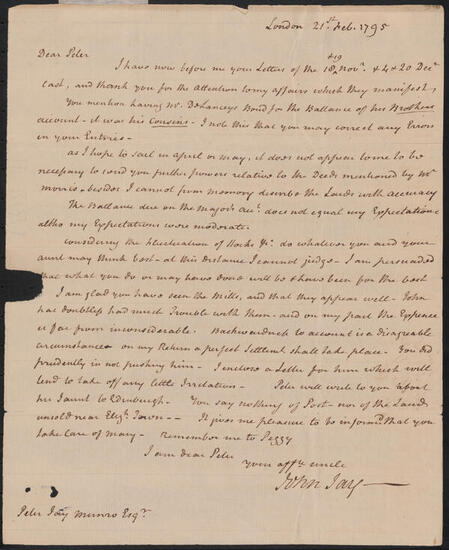 London 21st Feb. 1795
Dear Peter
I have now before me your Letters of the 18 & 19 Novr. & 4 & 20 Decr.
last, and thank you for the Attention to my affairs which they manifest,
You mention having Mr. DeLanceys Bond for the Ballance of his Brothers
account - it was his Cousins - I note this that you may correct any Errors
in your Entries -
as I hope to sail in april or may, it does not appear to me to be
necessary to send you further powers relative to the Deeds mentioned by Mr
morris - besides I cannot from memory describe the Lands with accuracy
The Ballance due on the Major's acct. does not equal my Expectations
altho my Expectations were moderate.
considering the fluctuation of Stocks &c. do whatever you and your
aunt may think best - at this distance I cannot judge - I am persuaded
that what you do or may have done will be & have been for the best
I am glad you have seen the Mills, and that they appear well - John
has doubtless had much Trouble with them - and on my part the Expence
is far from inconsiderable. Backwardness to account is a disagreable
circumstance - on my Return a perfect Settlemt shall take place - You did
prudently in not pushing him - I enclose a Letter for him which will
tend to take off any little Irritation - Peter will write to you about
his Jaunt to Edinburgh - You say nothing of Post - nor of the Lands
unsold near Elizh. Town - - It gives me pleasure to be informd that you
take care of mary - remember me to Peggy
I am dear Peter
your afft. uncle
John Jay -
Peter Jay Munro Esqr.